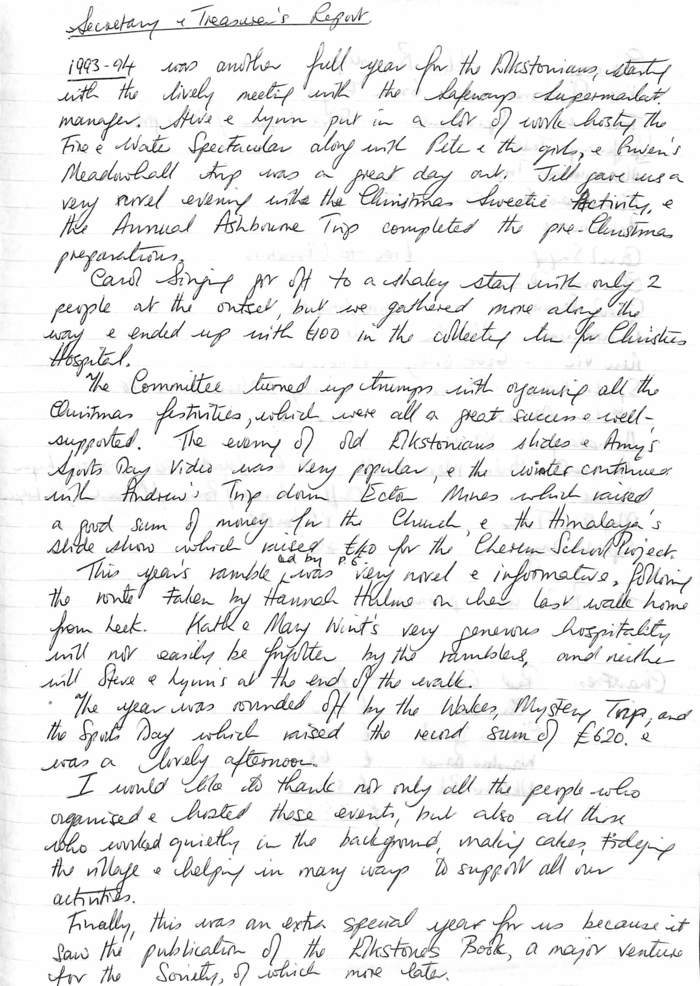 Secretary & Treasurer's Report.
1993-94 was another full year for the Elkstonians, starting
with the lively meeting with the Safeways Supermarket
manager. Steve & Lynn put in a lot of work hosting the
Fire & Water Spectacular along with Pete & the girls, &
Meadowhall trip was a great day out. Jill gave us a
very novel evening with the Christmas Sweetie Activity, &
the Annual Ashbourne Trip completed the pre-Christmas
preparations.
Carol Singing got off to a shakey start with only 2
people at the outset, but we gathered more along the
way & ended up with £100 in the collecting tin for Christies
Hospital.
The Committee turned up trumps with organising all the
Christmas festivities, which were all a great success & well-
supported. The evening of old Elkstonians slides & Amy's
Sports Day Video was very popular, & the winter continued
with Andrew's Trip down Ecton Mines which raised
a good sum of money for the Church, & the Himalaya's
slide show which raised for the School Project.
This year's ramble, led by P.G. was very novel & informative, following
the route taken by Hannah Hulme on her last walk home
from Leek. Kath & Mary Wint's very generous hospitality
will not easily be forgotten by the ramblers, and neither
will Steve & Lynn's at the end of the walk.
The year was rounded off by the Wakes, Mystery Trip, and
the Sports Day which raised the record sum of £620. &
was a lovely afternoon.
I would like to thank not only all the people who
organised & hosted these events, but also all those
who worked quietly in the background, making cakes, tidying
the village & helping in many ways to support all our
activities.
Finally, this was an extra special year for us because it
saw the publication of the Elkstones Book, a major venture
for the Society, of which more later.